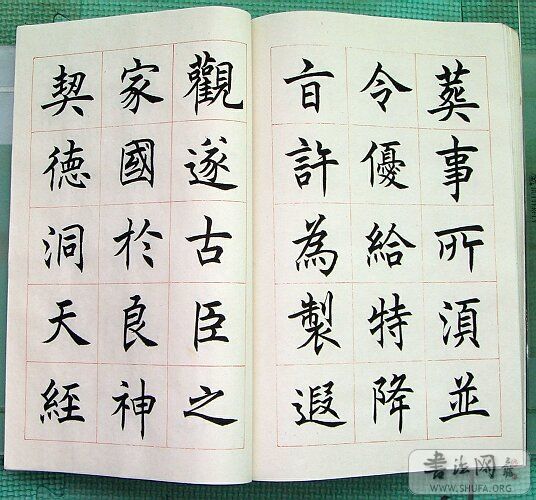 葬事所湏並
令優給特降
㫖許為製遐
觀遂古臣之
家國於良神
契德洞天經
書法网
WWW.SHUFA.ORG